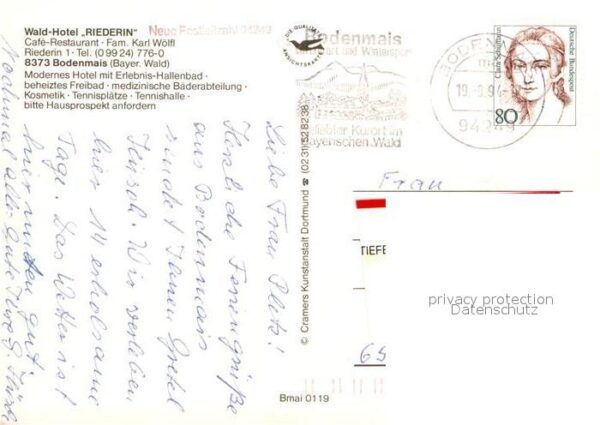 Wald-Hotel „RIEDERIN"
Neue Postleitzahl 94249
Café-Restaurant · Fam. Karl Wölfl
Riederin 1 · Tel. (0 99 24) 776-0
8373 Bodenmais (Bayer. Wald)
Modernes Hotel mit Erlebnis-Hallenbad ·
beheiztes Freibad · medizinische Bäderabteilung ·
Kosmetik · Tennisplätze · Tennishalle ·
bitte Hausprospekt anfordern
Liebe Frau
Herzliche Feriengrüße
aus Bodenmais
sendet Ihnen
Wir verleben
hier 14 erholsame
Tage. Das Wetter ist
gut.
Nochmal alles Gute Ihre G.
DIE QUALITÄTS
ANSICHTSKARTE
© Cramers Kunstanstalt Dortmund ☎ (02 31) 52 82 38
Bmai 0119
Bodenmais
und Wintersport
beliebter Kurort im
Bayerischen Wald
BODENMAIS
94249
Clara Schumann
Deutsche Bundespost
80
Frau
TIEFE
65
privacy protection
Datenschutz